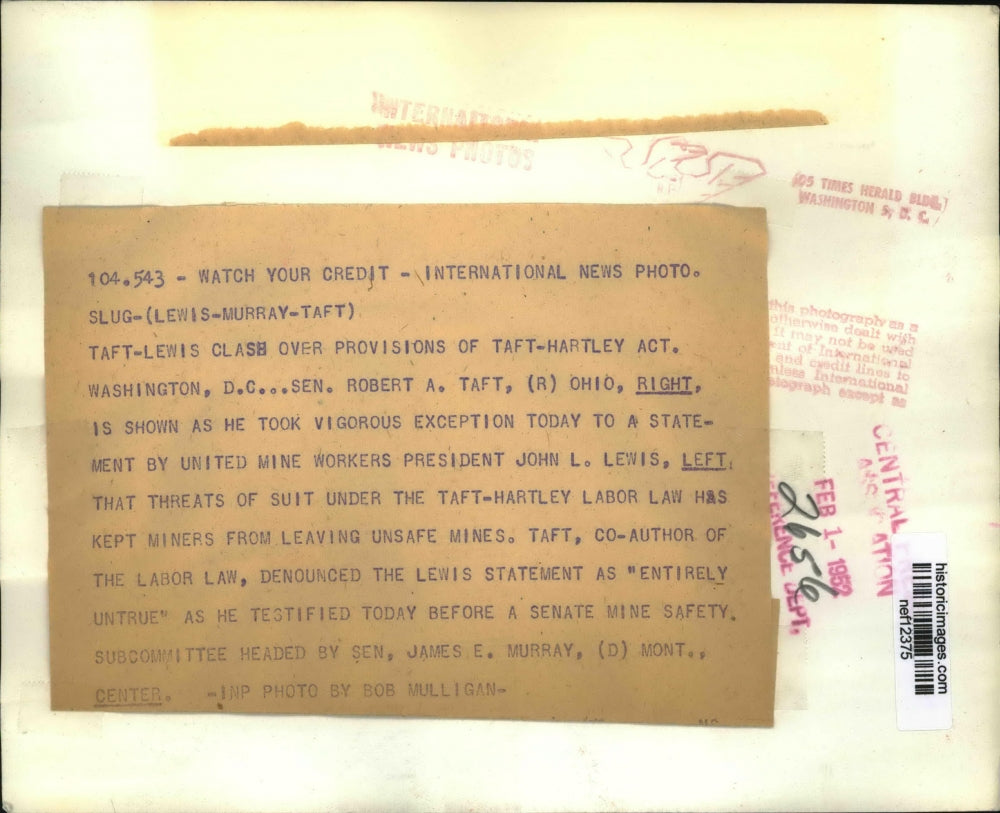 INTERNATIONAL
NEWS PHOTOS
105 TIMES HERALD BLDG.
WASHINGTON 5, D. C.
104.543 - WATCH YOUR CREDIT - INTERNATIONAL NEWS PHOTO.
SLUG-(LEWIS-MURRAY-TAFT)
TAFT-LEWIS CLASH OVER PROVISIONS OF TAFT-HARTLEY ACT.
WASHINGTON, D.C...SEN. ROBERT A. TAFT, (R) OHIO, RIGHT,
IS SHOWN AS HE TOOK VIGOROUS EXCEPTION TODAY TO A STATE-
MENT BY UNITED MINE WORKERS PRESIDENT JOHN L. LEWIS, LEFT,
THAT THREATS OF SUIT UNDER THE TAFT-HARTLEY LABOR LAW HAS
KEPT MINERS FROM LEAVING UNSAFE MINES. TAFT, CO-AUTHOR OF
THE LABOR LAW, DENOUNCED THE LEWIS STATEMENT AS "ENTIRELY
UNTRUE" AS HE TESTIFIED TODAY BEFORE A SENATE MINE SAFETY.
SUBCOMMITTEE HEADED BY SEN. JAMES E. MURRAY, (D) MONT.,
CENTER. -INP PHOTO BY BOB MULLIGAN-
this photograph as a
otherwise dealt with
it may not be used
of International
and credit lines to
International
except as
CENTRAL
FEB 1- 1952
2656
DEPT.
historicimages.com
nef12375